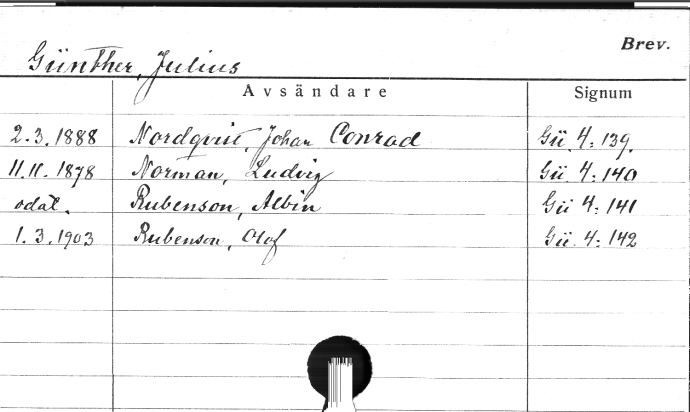 Brev.
Günther, Julius
Avsändare Signum
2.3.1888 Nordqvist, Johan Conrad Gü 4:139.
11.11.1878 Norman, Ludvig Gü 4:140
odat. Rubenson, Albin Gü 4:141
1.3.1903 Rubenson, Olof Gü 4:142